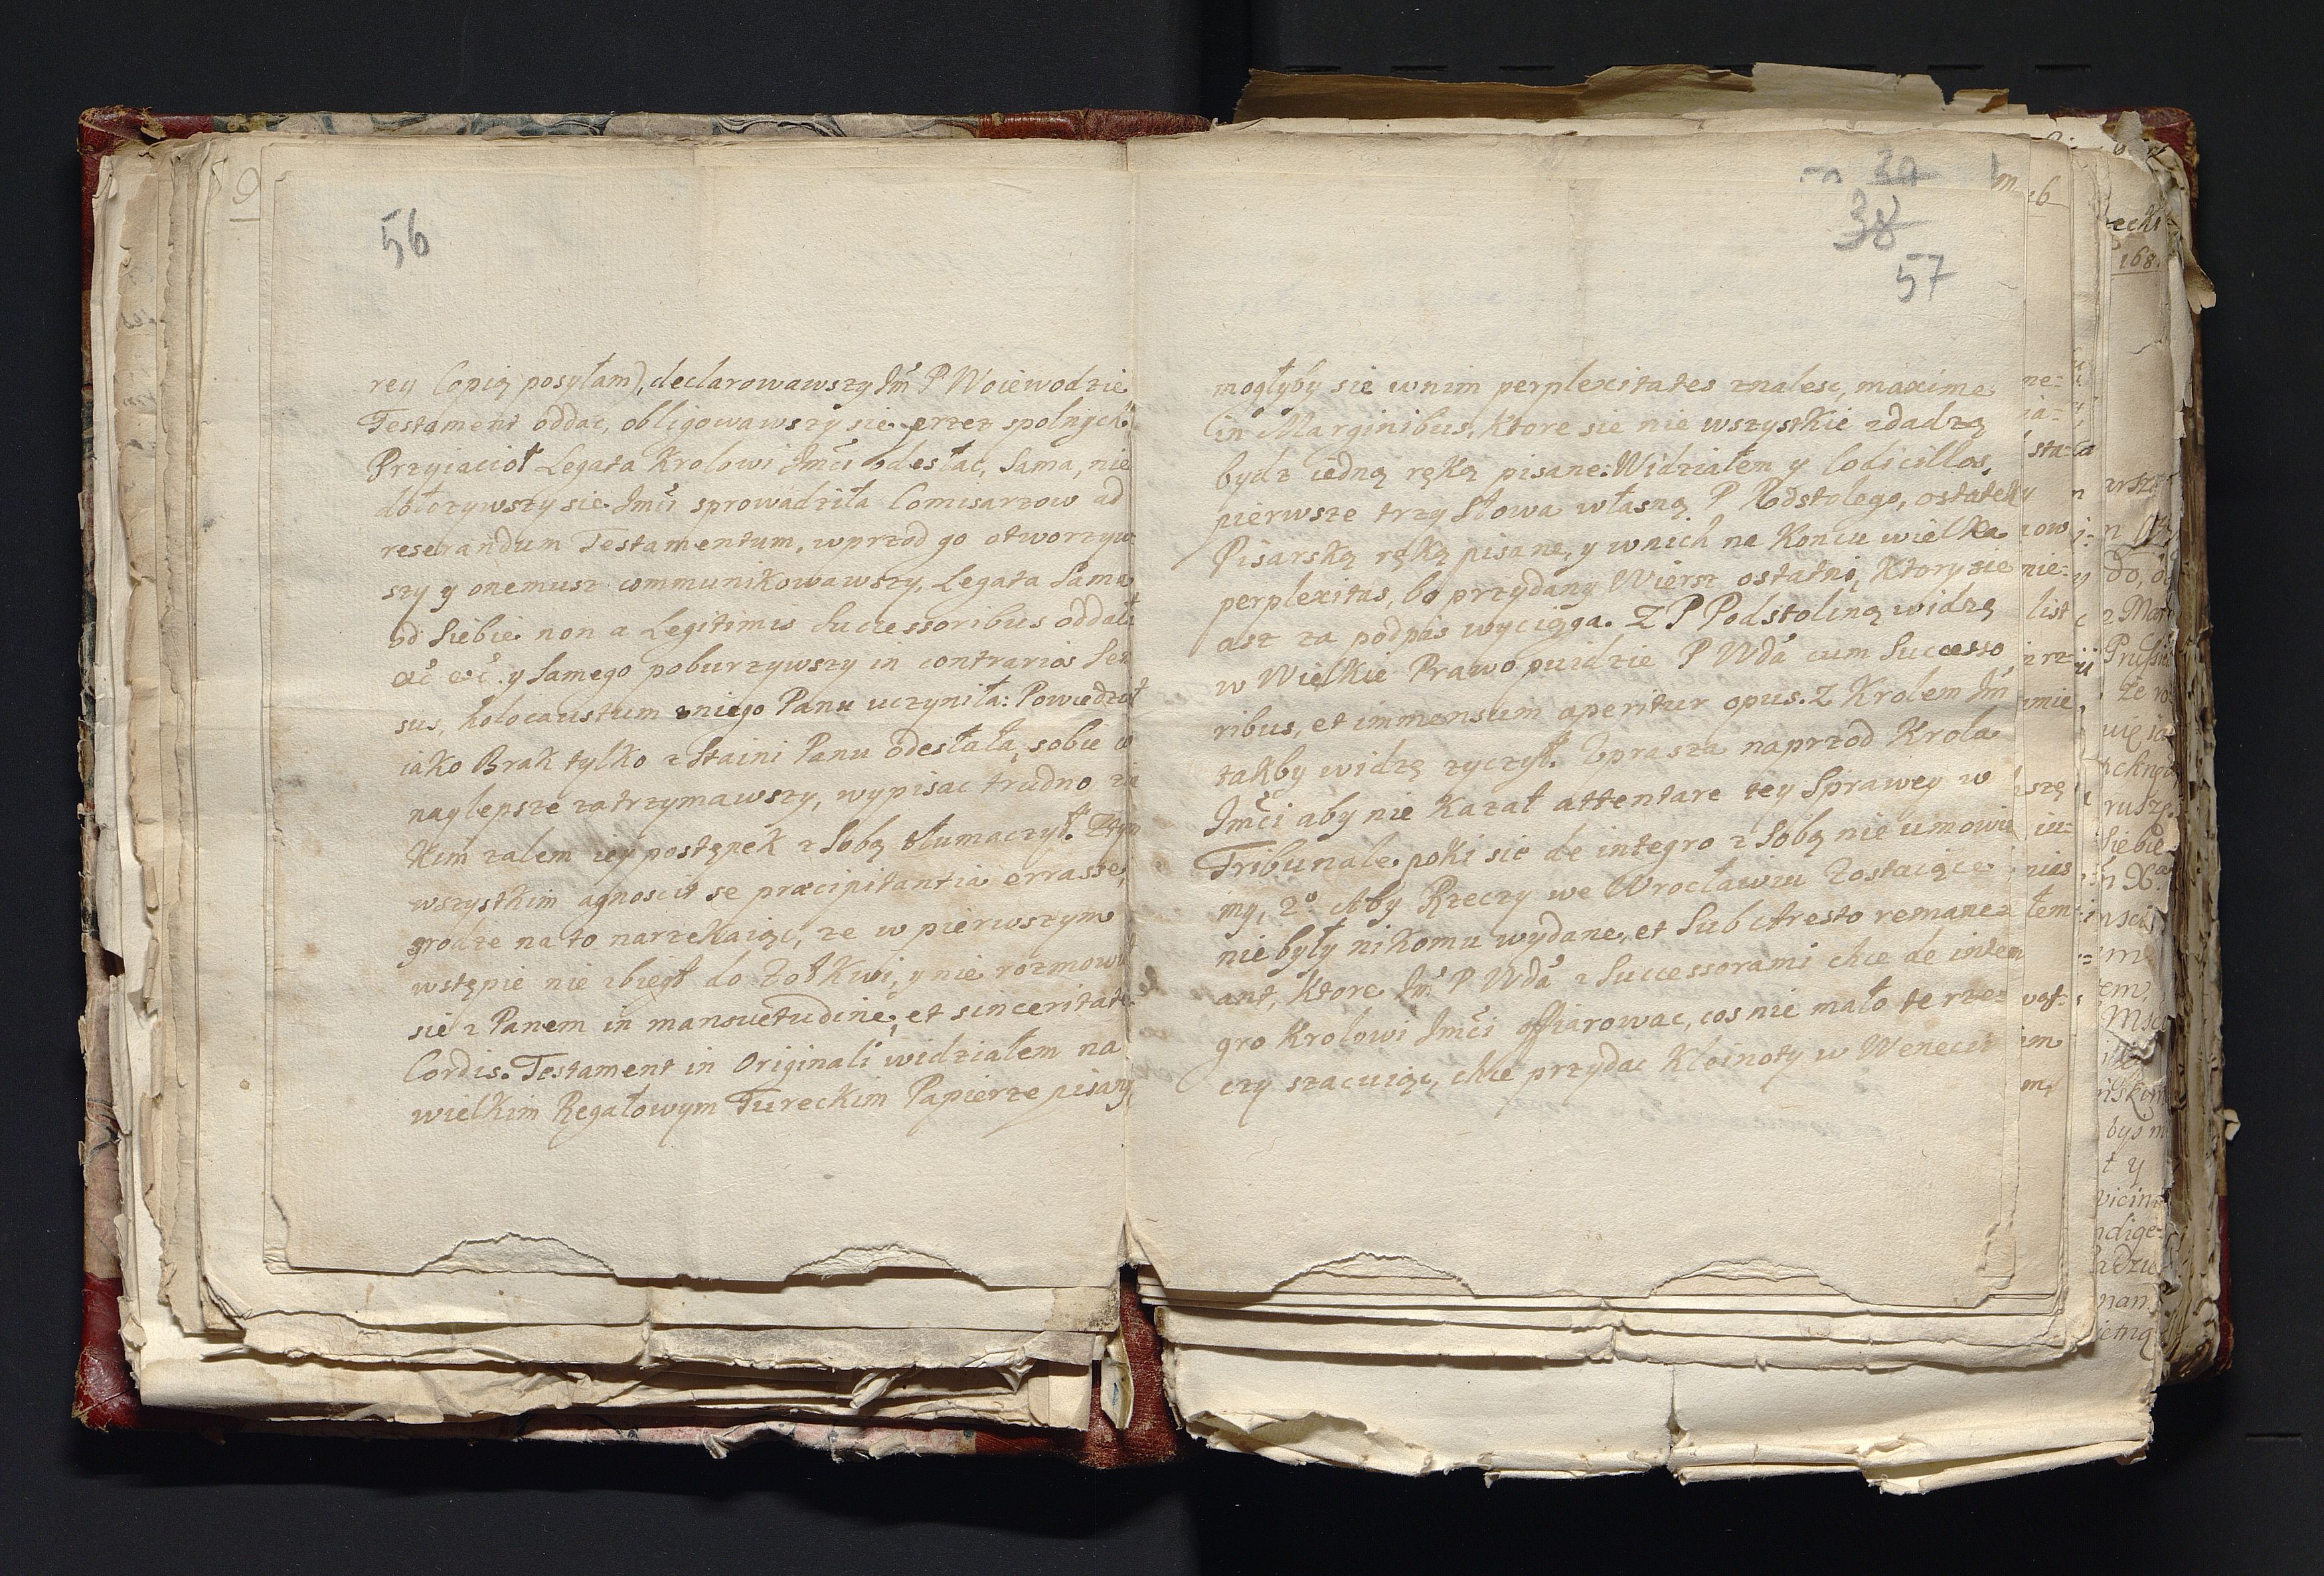 56
rey Copią posyłam), declarowawszy Jmć P Woiewodzie
Testament oddac, obligowawszy sie przez spolnych
Przyiacioł Legata Krolowi Jmći odesłac, Sama, nie
dołozywszy sie Jmći sprowadziła Comisarzow ad
reserandum Testamentum, wprzod go otworzyw
szy y onemusz communikowawszy, Legata Sama
od Siebie non a Legitimis Successoribus oddała
&c &c. y Samego poburzywszy in contrarios Sen
sus, holocaustum zniego Panu uczyniła: Powiedział
iako Brak tylko z Staini Panu odesłała, sobie co
naylepsze zatrzymawszy, wypisac trudno z ia
kim zalem iey postępek z Sobą tłumaczył. Ztym
wszystkim agnoscit se præcipitantia errasse,
srodze na to narzekaiąc, ze w pierwszym
wstępie nie zbiegł do Zołkwi, y nie rozmowił
sie z Panem in mansuetudine, et sinceritate
Cordis. Testament in Originali widziałem na
wielkim Regałowym Tureckim Papierze pisany,
38
57
mogłyby sie wnim perplexitates znalesc, maxime
in Marginibus, Ktore sie nie wszystkie zdadzą
bydz iedną ręką pisane: Widziałem y Codicillos,
pierwsze trzy Słowa własną P Podstolego, ostatek
Pisarską ręką pisane, y wnich na Koncu wielka
perplexitas, bo przydany Wiersz ostatni, Ktory sie
asz za podpis wyciąga. Z P Podstoliną widzę
w Wielkie Prawo puidzie P Wdá cum Successo
ribus, et immensum aperitur opus. Z Krolem Jm
takby widzę zyczył. Uprasza naprzod Krola
Jmći aby nie Kazał attentare tey Sprawy w
Tribunale poki sie de integro z Sobą nie umowi
my, 2º Aby Rzeczy we Wrocławiu Zostaiące
nie były nikomu wydane, et Sub Aresto remane=
ant, Ktore Jmć P Wdá z Successorami chce de inte
gro Krolowi Jmći offiarowac, cos nie mało te rze=
czy szacuiąc, chce przydac Kleinoty w Wenecii